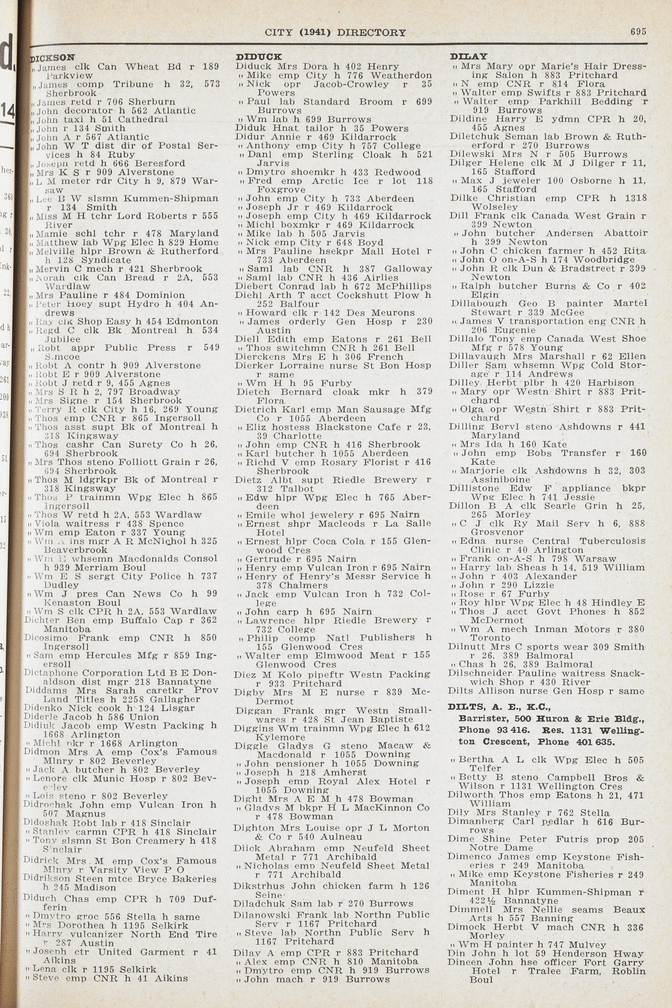 CITY (1941) DIRECTORY 695
DICKSON
" James clk Can Wheat Bd r 189
Parkview
" James comp Tribune h 32, 573
Sherbrook
" James retd r 706 Sherburn
" John decorator h 562 Atlantic
" John taxi h 51 Cathedral
" John r 134 Smith
" John A r 567 Atlantic
" John W T dist dir of Postal Ser-
vices h 84 Ruby
" Joseph retd h 666 Beresford
" Mrs K S r 909 Alverstone
" L M meter rdr City h 9, 879 War-
saw
" Lee B W slsmn Kummen-Shipman
r 134 Smith
" Miss M H tchr Lord Roberts r 555
River
" Mamie schl tchr r 478 Maryland
" Matthew lab Wpg Elec h 829 Home
" Melville hlpr Brown & Rutherford
h 128 Syndicate
" Mervin C mech r 421 Sherbrook
" Norah clk Can Bread r 2A, 553
Wardlaw
" Mrs Pauline r 484 Dominion
" Peter troey supt Hydro h 404 An-
drews
" Ray clk Shop Easy h 454 Edmonton
" Regd C clk Bk Montreal h 534
Jubilee
" Robt appr Public Press r 549
Simcoe
" Robt A contr h 909 Alverstone
" Robt E r 909 Alverstone
" Robt J retd r 9, 455 Agnes
" Mrs S R h 2, 797 Broadway
" Mrs Signe r 154 Sherbrook
" Terry R clk City h 16, 269 Young
" Thos emp CNR r 865 Ingersoll
" Thos asst supt Bk of Montreal h
318 Kingsway
" Thos cashr Can Surety Co h 26,
694 Sherbrook
" Mrs Thos steno Folliott Grain r 26,
694 Sherbrook
" Thos M ldgrkpr Bk of Montreal r
318 Kingsway
" Thos P trainmn Wpg Elec h 865
Ingersoll
" Thos W retd h 2A, 553 Wardlaw
" Viola waitress r 438 Spence
" Wm emp Eaton r 337 Young
" Wm ins mgr A R McNichol h 325
Beaverbrook
" Wm whsemn Macdonalds Consol
h 939 Merriam Boul
" Wm E S sergt City Police h 737
Dudley
" Wm J pres Can News Co h 99
Kenaston Boul
" Wm S clk CPR h 2A, 553 Wardlaw
Dichter Ben emp Buffalo Cap r 362
Manitoba
Dicosimo Frank emp CNR h 850
Ingersoll
" Sam emp Hercules Mfg r 859 Ing-
ersoll
Dictaphone Corporation Ltd B E Don-
aldson dist mgr 218 Bannatyne
Diddams Mrs Sarah caretkr Prov
Land Titles h 2258 Gallagher
Didenko Nick cook h 124 Lisgar
Diderle Jacob h 586 Union
Didiuk Jacob emp Westn Packing h
1668 Arlington
" Michl pkr r 1668 Arlington
Didmon Mrs A emp Cox's Famous
Mlnry r 802 Beverley
" Jack A butcher h 802 Beverley
" Lenore clk Munic Hosp r 802 Bev-
erley
" Lois steno r 802 Beverley
Didrochak John emp Vulcan Iron h
507 Magnus
Didoshak Robt lab r 418 Sinclair
" Stanley carmn CPR h 418 Sinclair
" Tony slsmn St Bon Creamery h 418
Sinclair
Didrick Mrs M emp Cox's Famous
Mlnry r Varsity View P O
Didrikson Steen mtce Bryce Bakeries
h 245 Madison
Diduch Chas emp CPR h 709 Duf-
ferin
" Dmytro groc 556 Stella h same
" Mrs Dorothea h 1195 Selkirk
" Harry vulcanizer North End Tire
r 287 Austin
" Joseph ctr United Garment r 41
Aikins
" Lena clk r 1195 Selkirk
" Steve emp CNR h 41 Aikins
DIDUCK
Diduck Mrs Dora h 402 Henry
" Mike emp City h 776 Weatherdon
" Nick opr Jacob-Crowley r 35
Powers
" Paul lab Standard Broom r 699
Burrows
" Wm lab h 699 Burrows
Diduk Hnat tailor h 35 Powers
Didur Annie r 469 Kildarrock
" Anthony emp City h 757 College
" Danl emp Sterling Cloak h 521
Jarvis
" Dmytro shoemkr h 433 Redwood
" Fred emp Arctic Ice r lot 118
Foxgrove
" John emp City h 733 Aberdeen
" Joseph Jr r 469 Kildarrock
" Joseph emp City h 469 Kildarrock
" Michl boxmkr r 469 Kildarrock
" Mike lab h 505 Jarvis
" Nick emp City r 648 Boyd
" Mrs Pauline hsekpr Mall Hotel r
733 Aberdeen
" Saml lab CNR h 387 Galloway
" Saml lab CNR h 436 Airlies
Diebert Conrad lab h 672 McPhillips
Diehl Arth T acct Cockshutt Plow h
252 Balfour
" Howard clk r 142 Des Meurons
" James orderly Gen Hosp r 230
Austin
Diell Edith emp Eatons r 261 Bell
" Thos switchmn CNR h 261 Bell
Dierckens Mrs E h 306 French
Dierker Lorraine nurse St Bon Hosp
r same
" Wm H h 95 Furby
Dietch Bernard cloak mkr h 379
Flora
Dietrich Karl emp Man Sausage Mfg
Co r 1055 Aberdeen
" Eliz hostess Blackstone Cafe r 23,
39 Charlotte
" John emp CNR h 416 Sherbrook
" Karl butcher h 1055 Aberdeen
" Richd V emp Rosary Florist r 416
Sherbrook
Dietz Albt supt Riedle Brewery r
312 Talbot
" Edw hlpr Wpg Elec h 765 Aber-
deen
" Emile whol jewelery r 695 Nairn
" Ernest shpr Macleods r La Salle
Hotel
" Ernest hlpr Coca Cola r 155 Glen-
wood Cres
" Gertrude r 695 Nairn
" Henry emp Vulcan Iron r 695 Nairn
" Henry of Henry's Messr Service h
378 Chalmers
" Jack emp Vulcan Iron h 732 Col-
lege
" John carp h 695 Nairn
" Lawrence hlpr Riedle Brewery r
732 College
" Philip comp Natl Publishers h
155 Glenwood Cres
" Walter emp Elmwood Meat r 155
Glenwood Cres
Diez M Kolo pipeftr Westn Packing
r 933 Pritchard
Digby Mrs M E nurse r 839 Mc-
Dermot
Diggan Frank mgr Westn Small-
wares r 428 St Jean Baptiste
Diggins Wm trainmn Wpg Elec h 612
Kylemore
Diggle Gladys G steno Macaw &
Macdonald r 1055 Downing
" John pensioner h 1055 Downing
" Joseph h 218 Amherst
" Joseph emp Royal Alex Hotel r
1055 Downing
Dight Mrs A E M h 478 Bowman
" Gladys M bkpr H L MacKinnon Co
r 478 Bowman
Dighton Mrs Louise opr J L Morton
& Co r 540 Aulneau
Diick Abraham emp Neufeld Sheet
Metal r 771 Archibald
" Nicholas emp Neufeld Sheet Metal
r 771 Archibald
Dikstrhus John chicken farm h 126
Seine
Diladchuk Sam lab r 270 Burrows
Dilanowski Frank lab Northn Public
Serv r 1167 Pritchard
" Steve lab Northn Public Serv h
1167 Pritchard
Dilay A emp CPR r 883 Pritchard
" Alex emp CNR h 810 Manitoba
" Dmytro emp CNR h 919 Burrows
" John mach r 919 Burrows
DILAY
" Mrs Mary opr Marie's Hair Dress-
ing Salon h 883 Pritchard
" N emp CNR r 814 Flora
" Walter emp Swifts r 883 Pritchard
" Walter emp Parkhill Bedding r
919 Burrows
Dildine Harry E ydmn CPR h 20,
455 Agnes
Diletchuk Seman lab Brown & Ruth-
erford r 270 Burrows
Dilewski Mrs N r 505 Burrows
Dilger Helene clk M J Dilger r 11,
165 Stafford
" Max J jeweler 100 Osborne h 11,
165 Stafford
Dilke Christian emp CPR h 1318
Wolseley
Dill Frank clk Canada West Grain r
399 Newton
" John butcher Andersen Abattoir
h 399 Newton
" John C chicken farmer h 452 Rita
" John O on-A-S h 174 Woodbridge
" John R clk Dun & Bradstreet r 399
Newton
" Ralph butcher Burns & Co r 402
Elgin
Dillabough Geo B painter Martel
Stewart r 339 McGee
" James V transportation eng CNR h
206 Eugenie
Dillalo Tony emp Canada West Shoe
Mfg r 578 Young
Dillavaugh Mrs Marshall r 62 Ellen
Diller Sam whsemn Wpg Cold Stor-
age r 114 Andrews
Dilley Herbt plbr h 420 Harbison
" Mary opr Westn Shirt r 883 Prit-
chard
" Olga opr Westn Shirt r 883 Prit-
chard
Dilling Beryl steno Ashdowns r 441
Maryland
" Mrs Ida h 160 Kate
" John emp Bobs Transfer r 160
Kate
" Marjorie clk Ashdowns h 32, 303
Assiniboine
Dillistone Edw F appliance bkpr
Wpg Elec h 741 Jessie
Dillon B A clk Searle Grin h 25,
265 Morley
" C J clk Ry Mail Serv h 6, 888
Grosvenor
" Edna nurse Central Tuberculosis
Clinic r 40 Arlington
" Frank on-A-S h 798 Warsaw
" Harry lab Sheas h 14, 519 William
" John r 403 Alexander
" John r 290 Lizzie
" Rose r 67 Furby
" Roy hlpr Wpg Elec h 48 Hindley E
" Thos J acct Govt Phones h 852
McDermot
" Wm A mech Inman Motors r 380
Toronto
Dilnutt Mrs C sports wear 309 Smith
r 26, 389 Balmoral
" Chas h 26, 389 Balmoral
Dilschneider Pauline waitress Snack-
wich Shop r 430 River
Dilts Allison nurse Gen Hosp r same
DILTS, A. E., K.C.,
Barrister, 500 Huron & Erie Bldg.,
Phone 93 416. Res. 1131 Welling-
ton Crescent, Phone 401 635.
" Bertha A L clk Wpg Elec h 505
Telfer
" Betty B steno Campbell Bros &
Wilson r 1131 Wellington Cres
Dilworth Thos emp Eatons h 21, 471
William
Dily Mrs Stanley r 762 Stella
Dimanberg Carl pedlar h 616 Bur-
rows
Dime Shine Peter Futris prop 205
Notre Dame
Dimenco James emp Keystone Fish-
eries r 249 Manitoba
" Mike emp Keystone Fisheries r 249
Manitoba
Diment H hlpr Kummen-Shipman r
422½ Bannatyne
Dimmell Mrs Nellie seams Beaux
Arts h 557 Banning
Dimock Herbt V mach CNR h 336
Morley
" Wm H painter h 747 Mulvey
Din John h lot 59 Henderson Hway
Dineen John hse officer Fort Garry
Hotel r Tralee Farm, Roblin
Boul